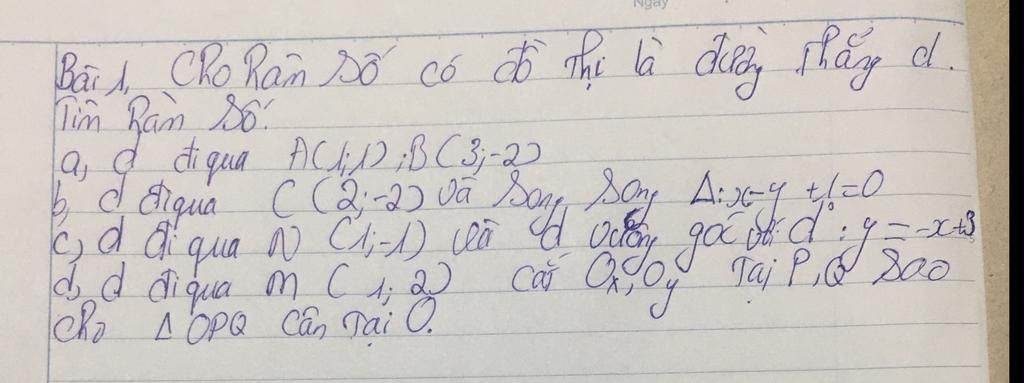 Ngày
Bài 1, Cho hàm số có đồ thị là đường thẳng d.
Tìm hàm số.
a, d đi qua A(1;1); B(3;-2)
b, d đi qua C(2;-2) và song song Δ: x-y+1=0
c, d đi qua N(1;-1) và d vuông góc với d': y=-x+3
d, d đi qua M(1;2) cắt Ox, Oy tại P, Q sao
cho Δ OPQ cân tại O.